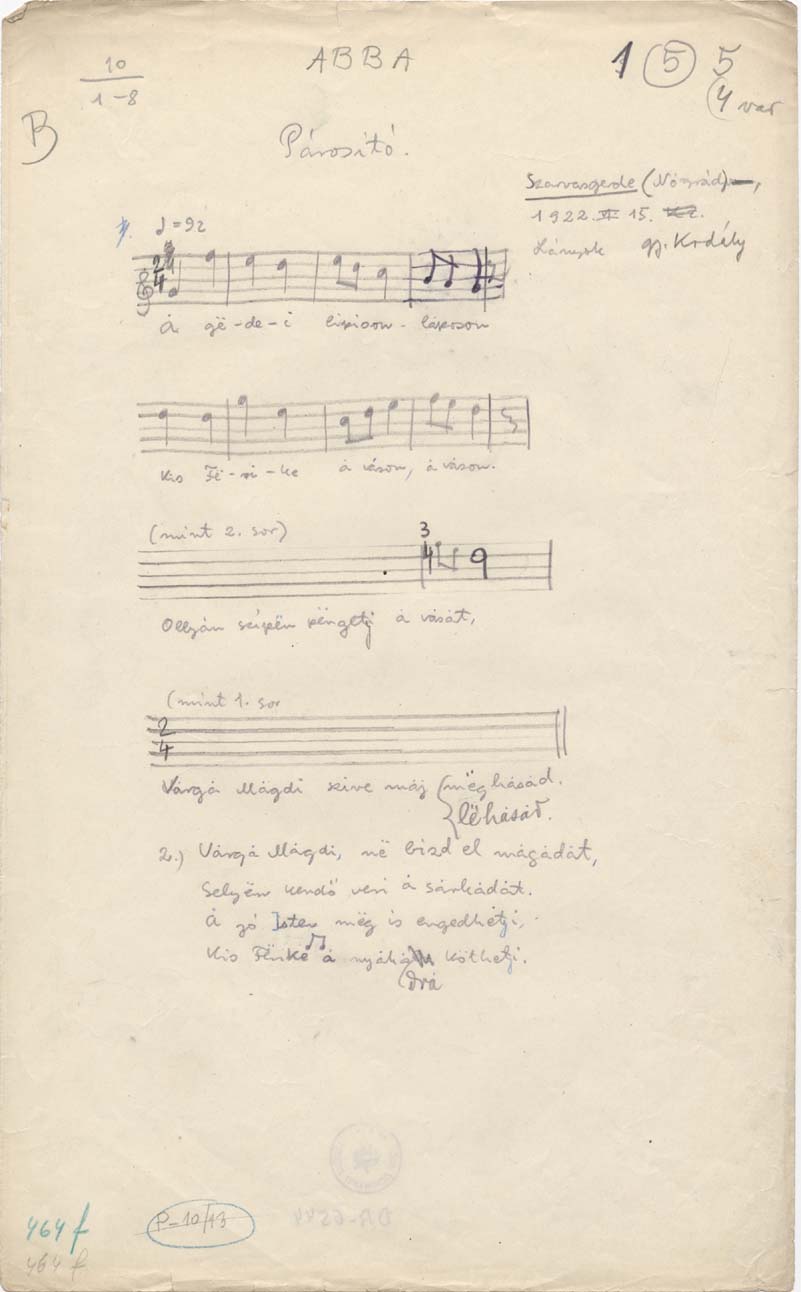 10
1-8
ABBA
1 5 5
(4 var
B
Párosító.
Szarvasgerde (Nógrád),
1922. VI 15.
Lányok gy. Király
♩=92
2
4
Á gë-de-i lipison-láposon
Kis Fë-ri-ke á váson, á váson.
(mint 2. sor)
3
4
Ollyán szípën pëngetỹ á vását,
(mint 1. sor
2
4
Várgá Mágdi szive máj {mëghásád.
lëhásád.
2.) Várgá Mágdi, në bizd el mágádát,
Selyëm kendő veri á sárkádát.
Á jó Isten mëg is engedhëtji,
Kis Fërike á nyákádrá köthetji.
464 f
464 f
P-10/13